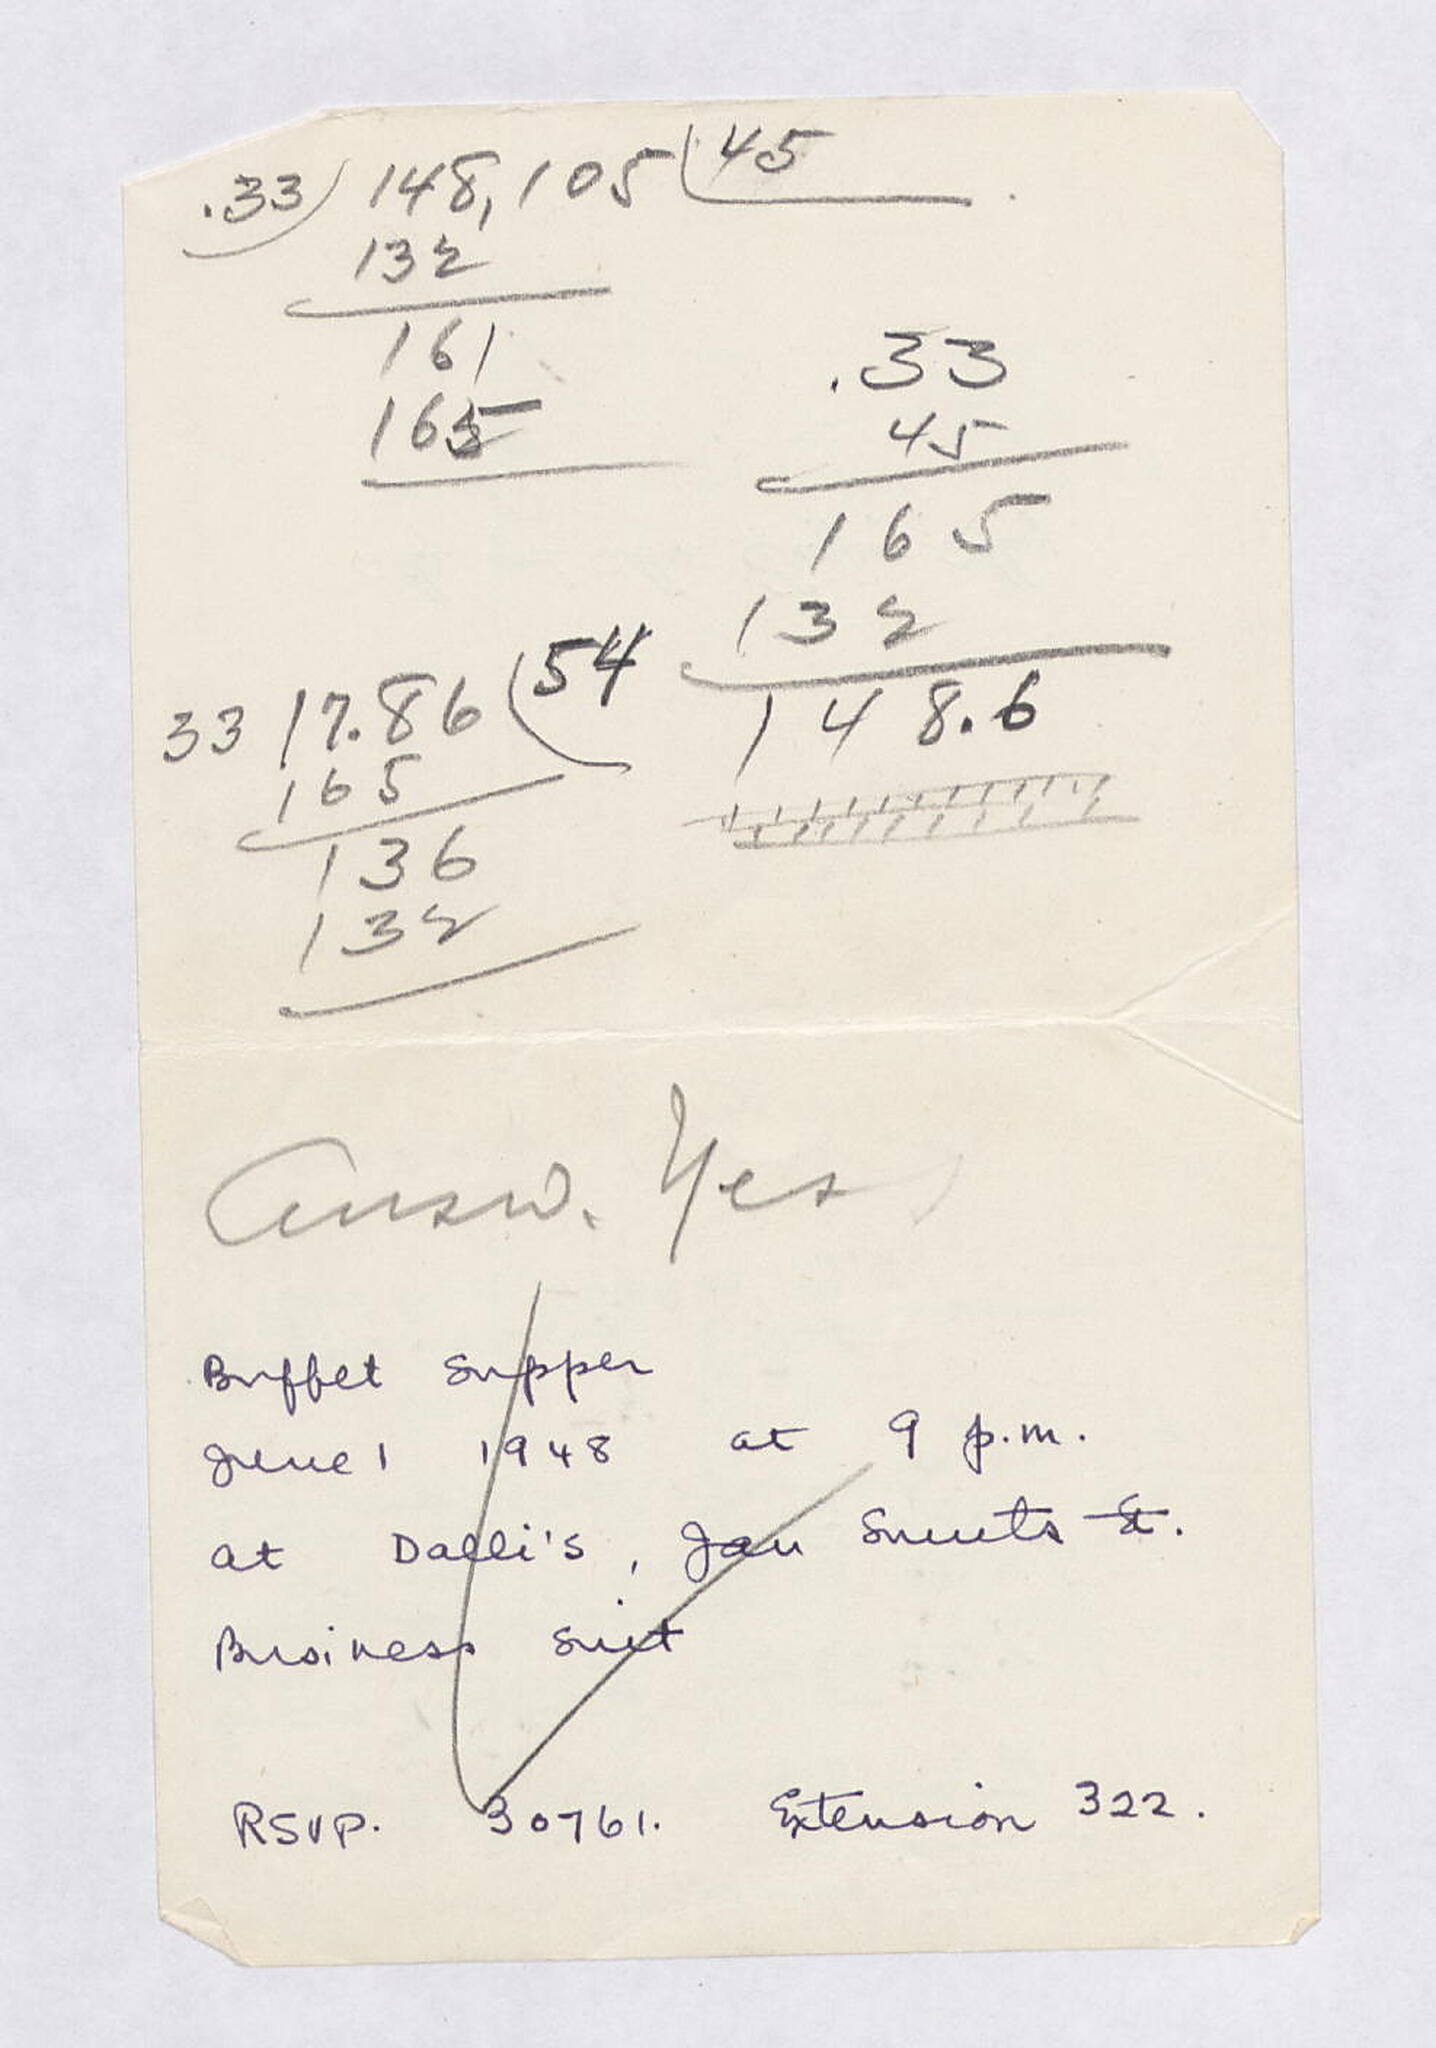 .33) 148,105 (45
132
161
165
.33
45
165
132
148.6
33 17.86 (54
165
136
132
Answ. Yes
Buffet Supper
June 1 1948 at 9 p.m.
at Dalli's, Jan Smuts St.
Business suit
RSVP. 30761. Extension 322.